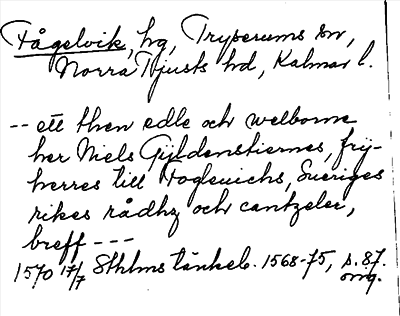 Fågelvik, hg, Tryserums sn,
Norra Tjusts hd, Kalmar l.
-- ett then edle och welborne
her Niels Gyldenstiernes, frij-
herres till Fogleuichs, Sueriges
rikes rådhz och cantzeler,
breff ---
1570 17/7 Sthlms tänkeb. 1568-75, s. 87.
omg.